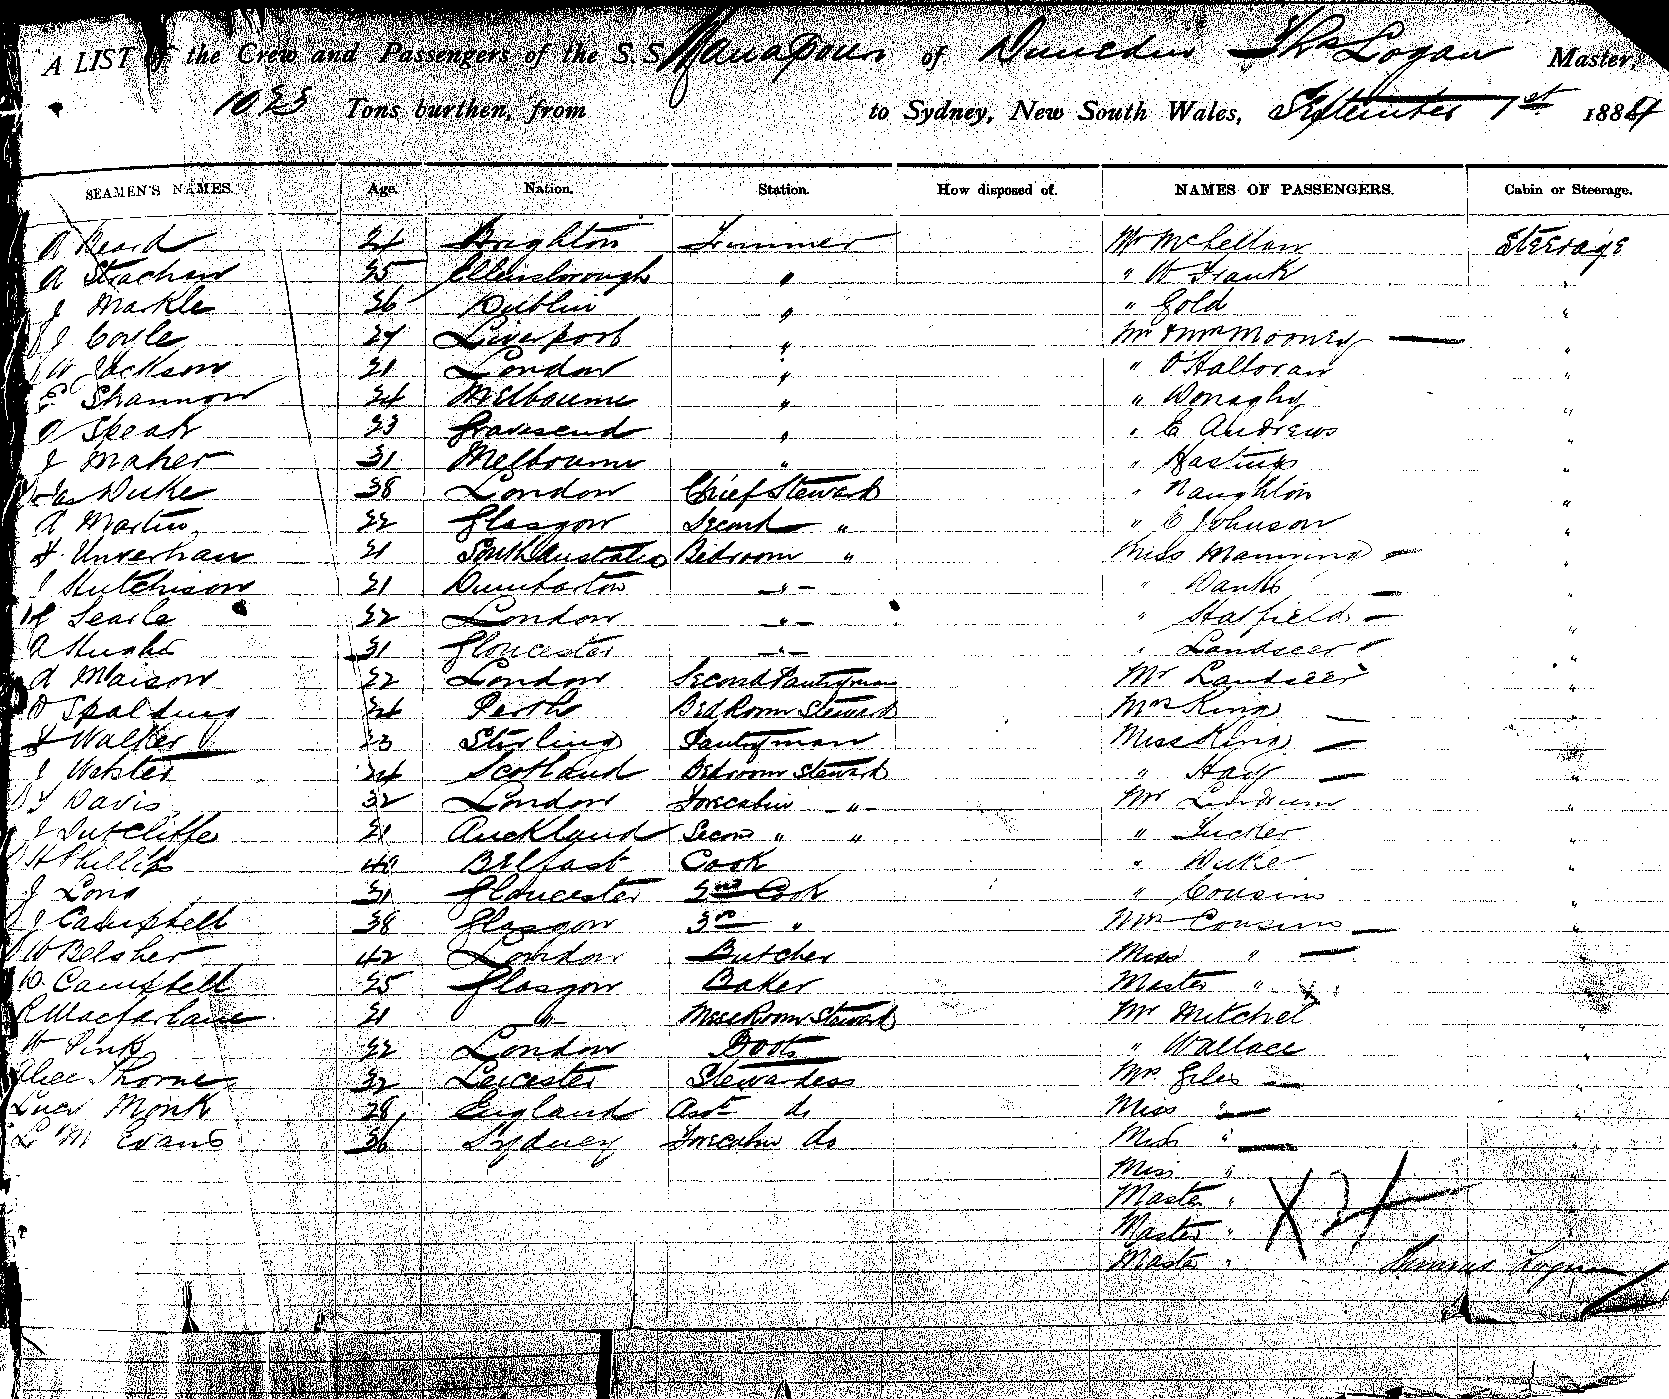 A LIST of the Crew and Passengers of the S.S. Manapouri of Dunedin Thos Logan Master,
1023 Tons burthen, from to Sydney, New South Wales, September 1st 1884
SEAMEN'S NAMES. Age. Nation. Station. How disposed of. NAMES OF PASSENGERS. Cabin or Steerage.
A Beard 24 Brighton Trimmer Mr McLellan Steerage
A Strachan 25 Ellensborough " " W Frank "
J Markle 26 Dublin " " Gold "
J Coyle 27 Liverpool " Mr & Mrs Mooney "
W Jackson 21 London " " O Halloran "
E Shannon 24 Melbourne " " Donaghy "
A Spear 23 Gravesend " " E Andrews "
J Maher 31 Melbourne " " Hastings "
Jas Duke 38 London Chief Steward " Naughton "
A Martin 22 Glasgow Second " " E Johnson "
H. Unverhau 21 South Australia Bedroom " Miss Manning "
J Hutchison 21 Dumbarton " " Danks "
H Searle 22 London " " Hatfield "
A Hughes 31 Gloucester " " Landseer "
A Maison 22 London Second Pantryman Mr Landseer "
D Spalding 24 Perth Bed Room Steward Mrs King "
J Walker 23 Stirling Pantryman Miss King "
J Webster 24 Scotland Bedroom Steward " Hay "
T Davis 32 London Forecabin " Mr Lindrum "
J Sutcliffe 21 Auckland Secon " " " Tucker "
H Phillips 40 Belfast Cook " Duke "
J Long 31 Gloucester 2nd Cook " Cousins "
J Campbell 38 Glasgow 3rd " Mrs Cousins "
W Belsher 42 London Butcher Miss " "
D Campbell 25 Glasgow Baker Master " "
R Macfarlane 21 " Mess Room Steward Mr Mitchel "
W Pink 22 London Boots " Wallace "
Alice Thorne 32 Leicester Stewardess Mrs Giles "
Lucy Monk 28 England Asst do Miss " "
L M Evans 36 Sydney Forecabin do Miss " "
Miss " "
Master "
Master "
Master " Thomas Logan
X 24